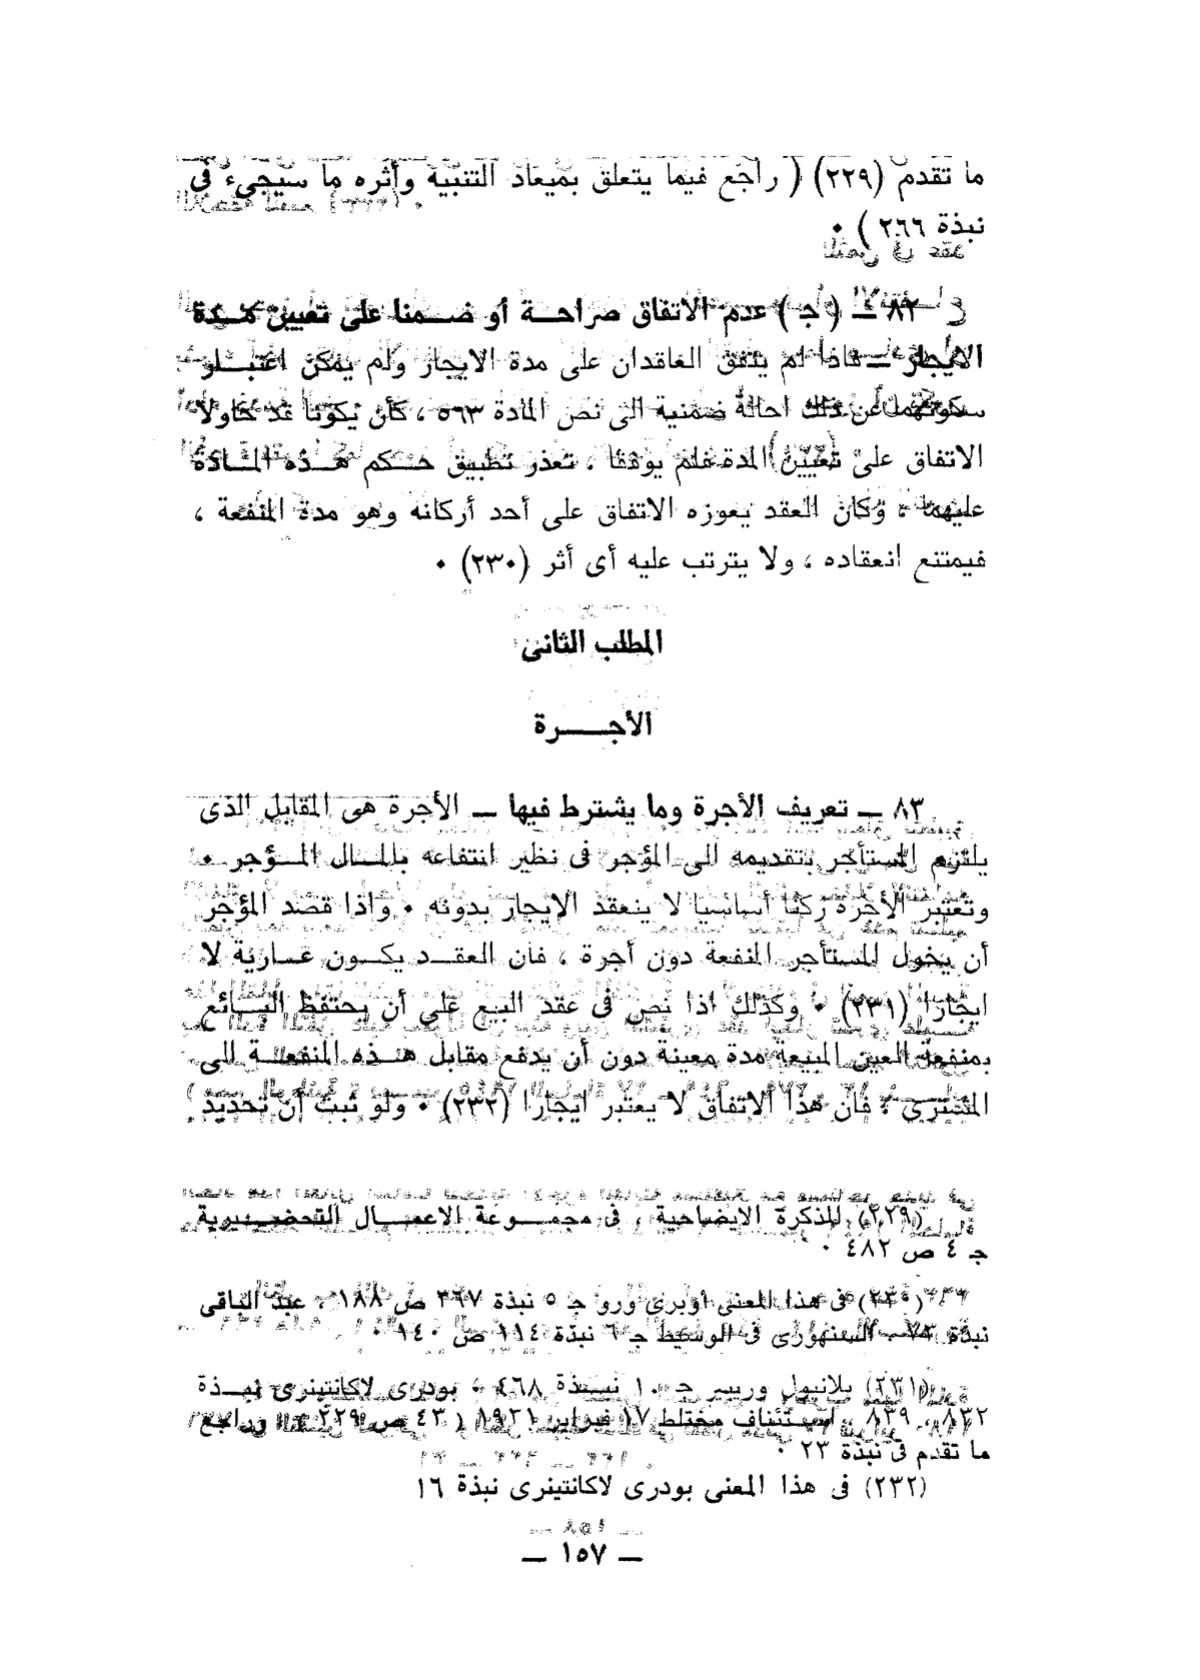 ما تقدم (٢٢٩) ( راجع فيما يتعلق بميعاد التنبيه وأثره ما سيجىء فى
نبذة ٢٦٦ ) ٠
٨٢ ـ ( ج ) عدم الاتفاق صراحـــة أو ضــمنا على تعيين مــدة
الايجار ـ فاذا لم يتفق العاقدان على مدة الايجار ولم يمكن اعتبــار
سكوتهما عن ذلك احالة ضمنية الى نص المادة ٥٦٣ ، كأن يكونا قد حاولا
الاتفاق على تعيين المدة فلم يوفقا ، تعذر تطبيق حــكم هــذه المــادة
عليهما ، وكان العقد يعوزه الاتفاق على أحد أركانه وهو مدة المنفعة ،
فيمتنع انعقاده ، ولا يترتب عليه أى أثر (٢٣٠) ٠
المطلب الثانى
الأجـــــرة
٨٣ ـ تعريف الأجرة وما يشترط فيها ـ الأجرة هى المقابل الذى
يلتزم المستأجر بتقديمه الى المؤجر فى نظير انتفاعه بالمــال المــؤجر ٠
وتعتبر الأجرة ركنا أساسيا لا ينعقد الايجار بدونه ٠ واذا قصد المؤجر
أن يخول المستأجر المنفعة دون أجرة ، فان العقــد يكــون عــارية لا
ايجارا (٢٣١) ٠ وكذلك اذا نص فى عقد البيع على أن يحتفظ البــائع
بمنفعة العين المبيعة مدة معينة دون أن يدفع مقابل هــذه المنفعــة الى
المشترى ، فان هذا الاتفاق لا يعتبر ايجارا (٢٣٢) ٠ ولو ثبت أن تحديد
(٢٢٩) المذكرة الايضاحية ، فى مجمــوعة الاعمــال التحضــيرية
ج ٤ ص ٤٨٢ ٠
(٢٣٠) فى هذا المعنى أوبرى ورو ج ٥ نبذة ٣٦٧ ص ١٨٨ ، عبد الباقى
نبذة ٧٣ ، السنهورى فى الوسيط ج ٦ نبذة ١١٤ ص ١٤٠ ٠
(٢٣١) بلانيول وريبير ج ١٠ نبــذة ٤٦٨ ، بودرى لاكانتينرى نبــذة
٨٣٢، ٨٣٩ ، استئناف مختلط ١٧ فبراير ١٩٢١ ( ٤٣ ص ٢٢٩ ) وراجع
ما تقدم فى نبذة ٢٣ ٠
(٢٣٢) فى هذا المعنى بودرى لاكانتينرى نبذة ١٦
ـ ١٥٧ ـ